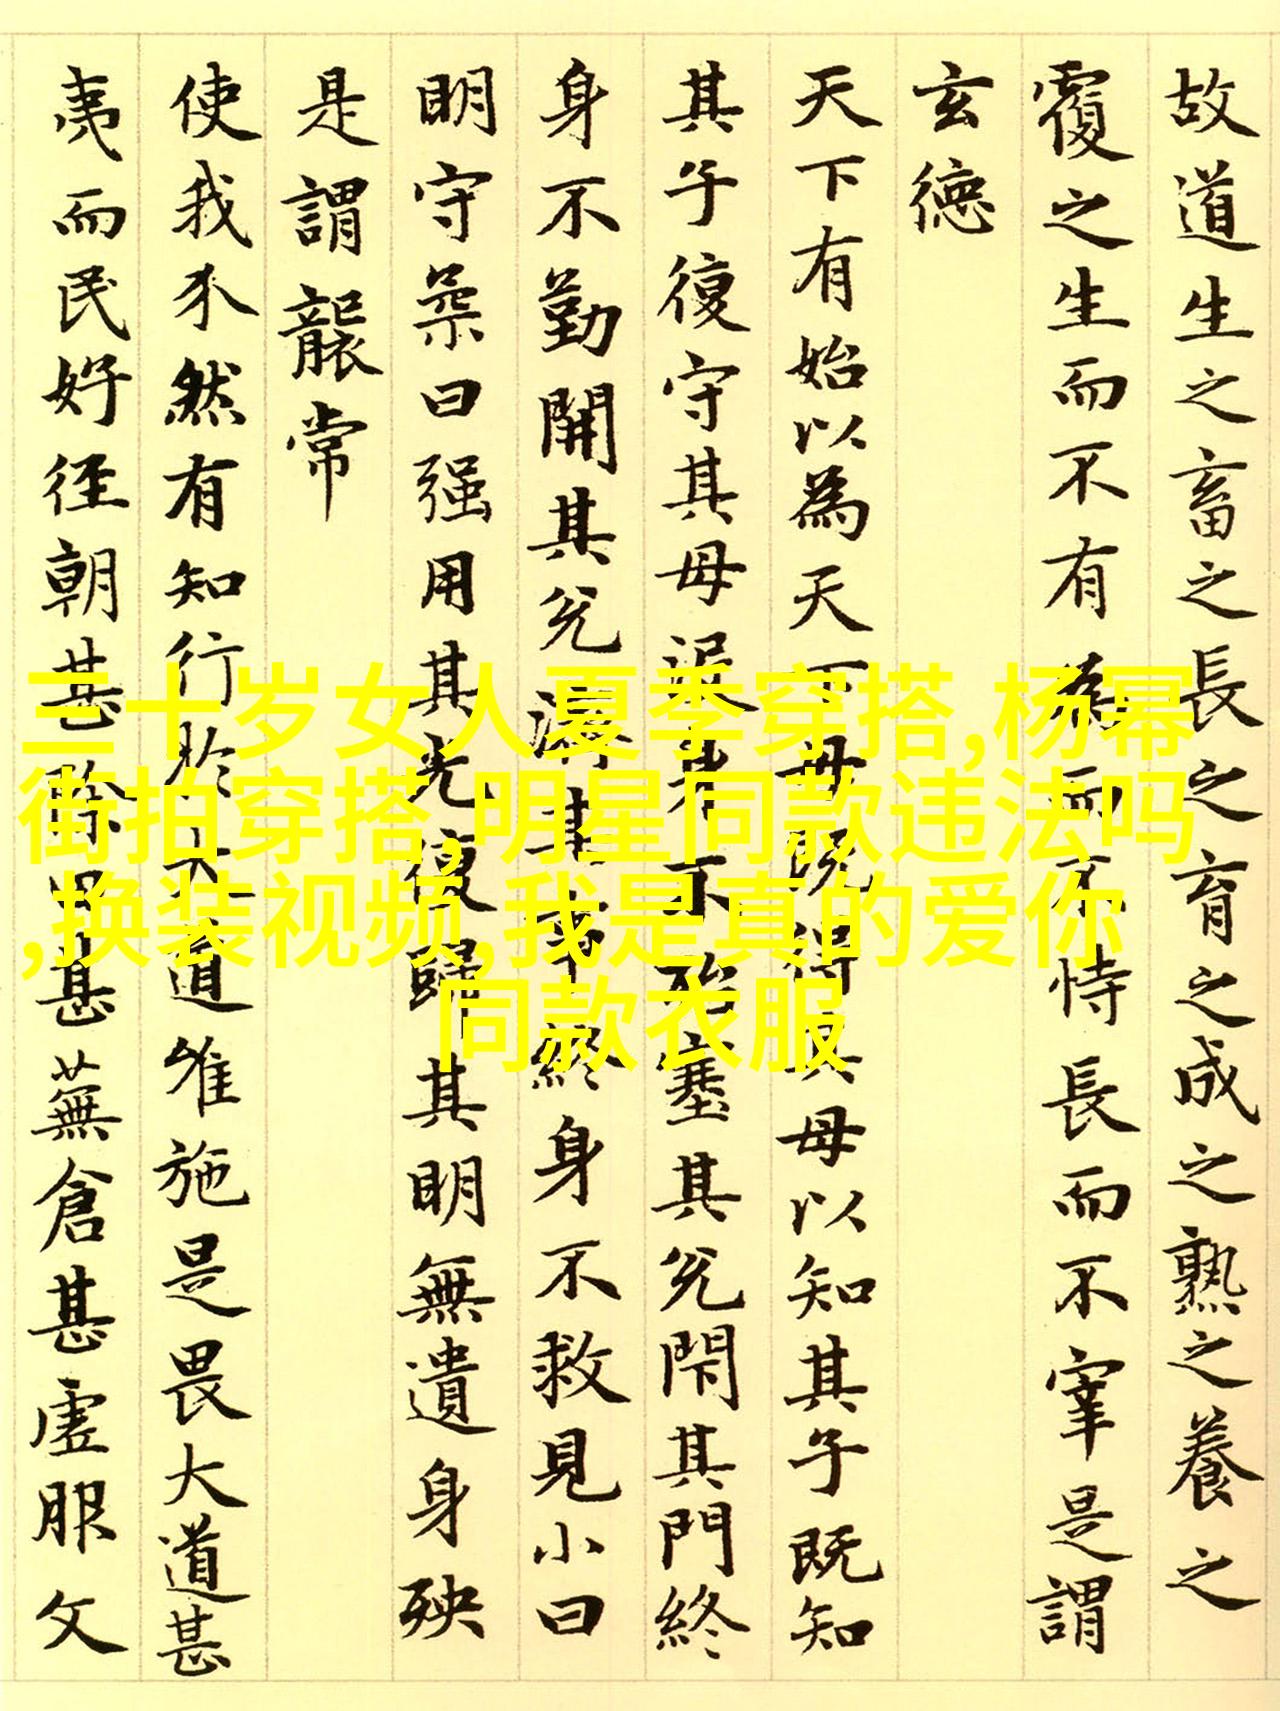 故道生之畜之長之育之成之熟之養之
覆之生而不有為而不恃長而不宰是謂
玄德
天下有始以為天下母既得其母以知其子既知
其子復守其母没身不殆塞其兊閇其門終
身不勤開其兊濟其事終身不救見小曰
明守柔曰强用其光復歸其明無遺身殃
是謂襲常
使我介然有知行於大道唯施是畏大道甚
夷而民好徑朝甚除田甚蕪倉甚虛服文
三十岁女人夏季穿搭,杨幂
街拍穿搭,明星同款违法吗
,换装视频,我是真的爱你
同款衣服